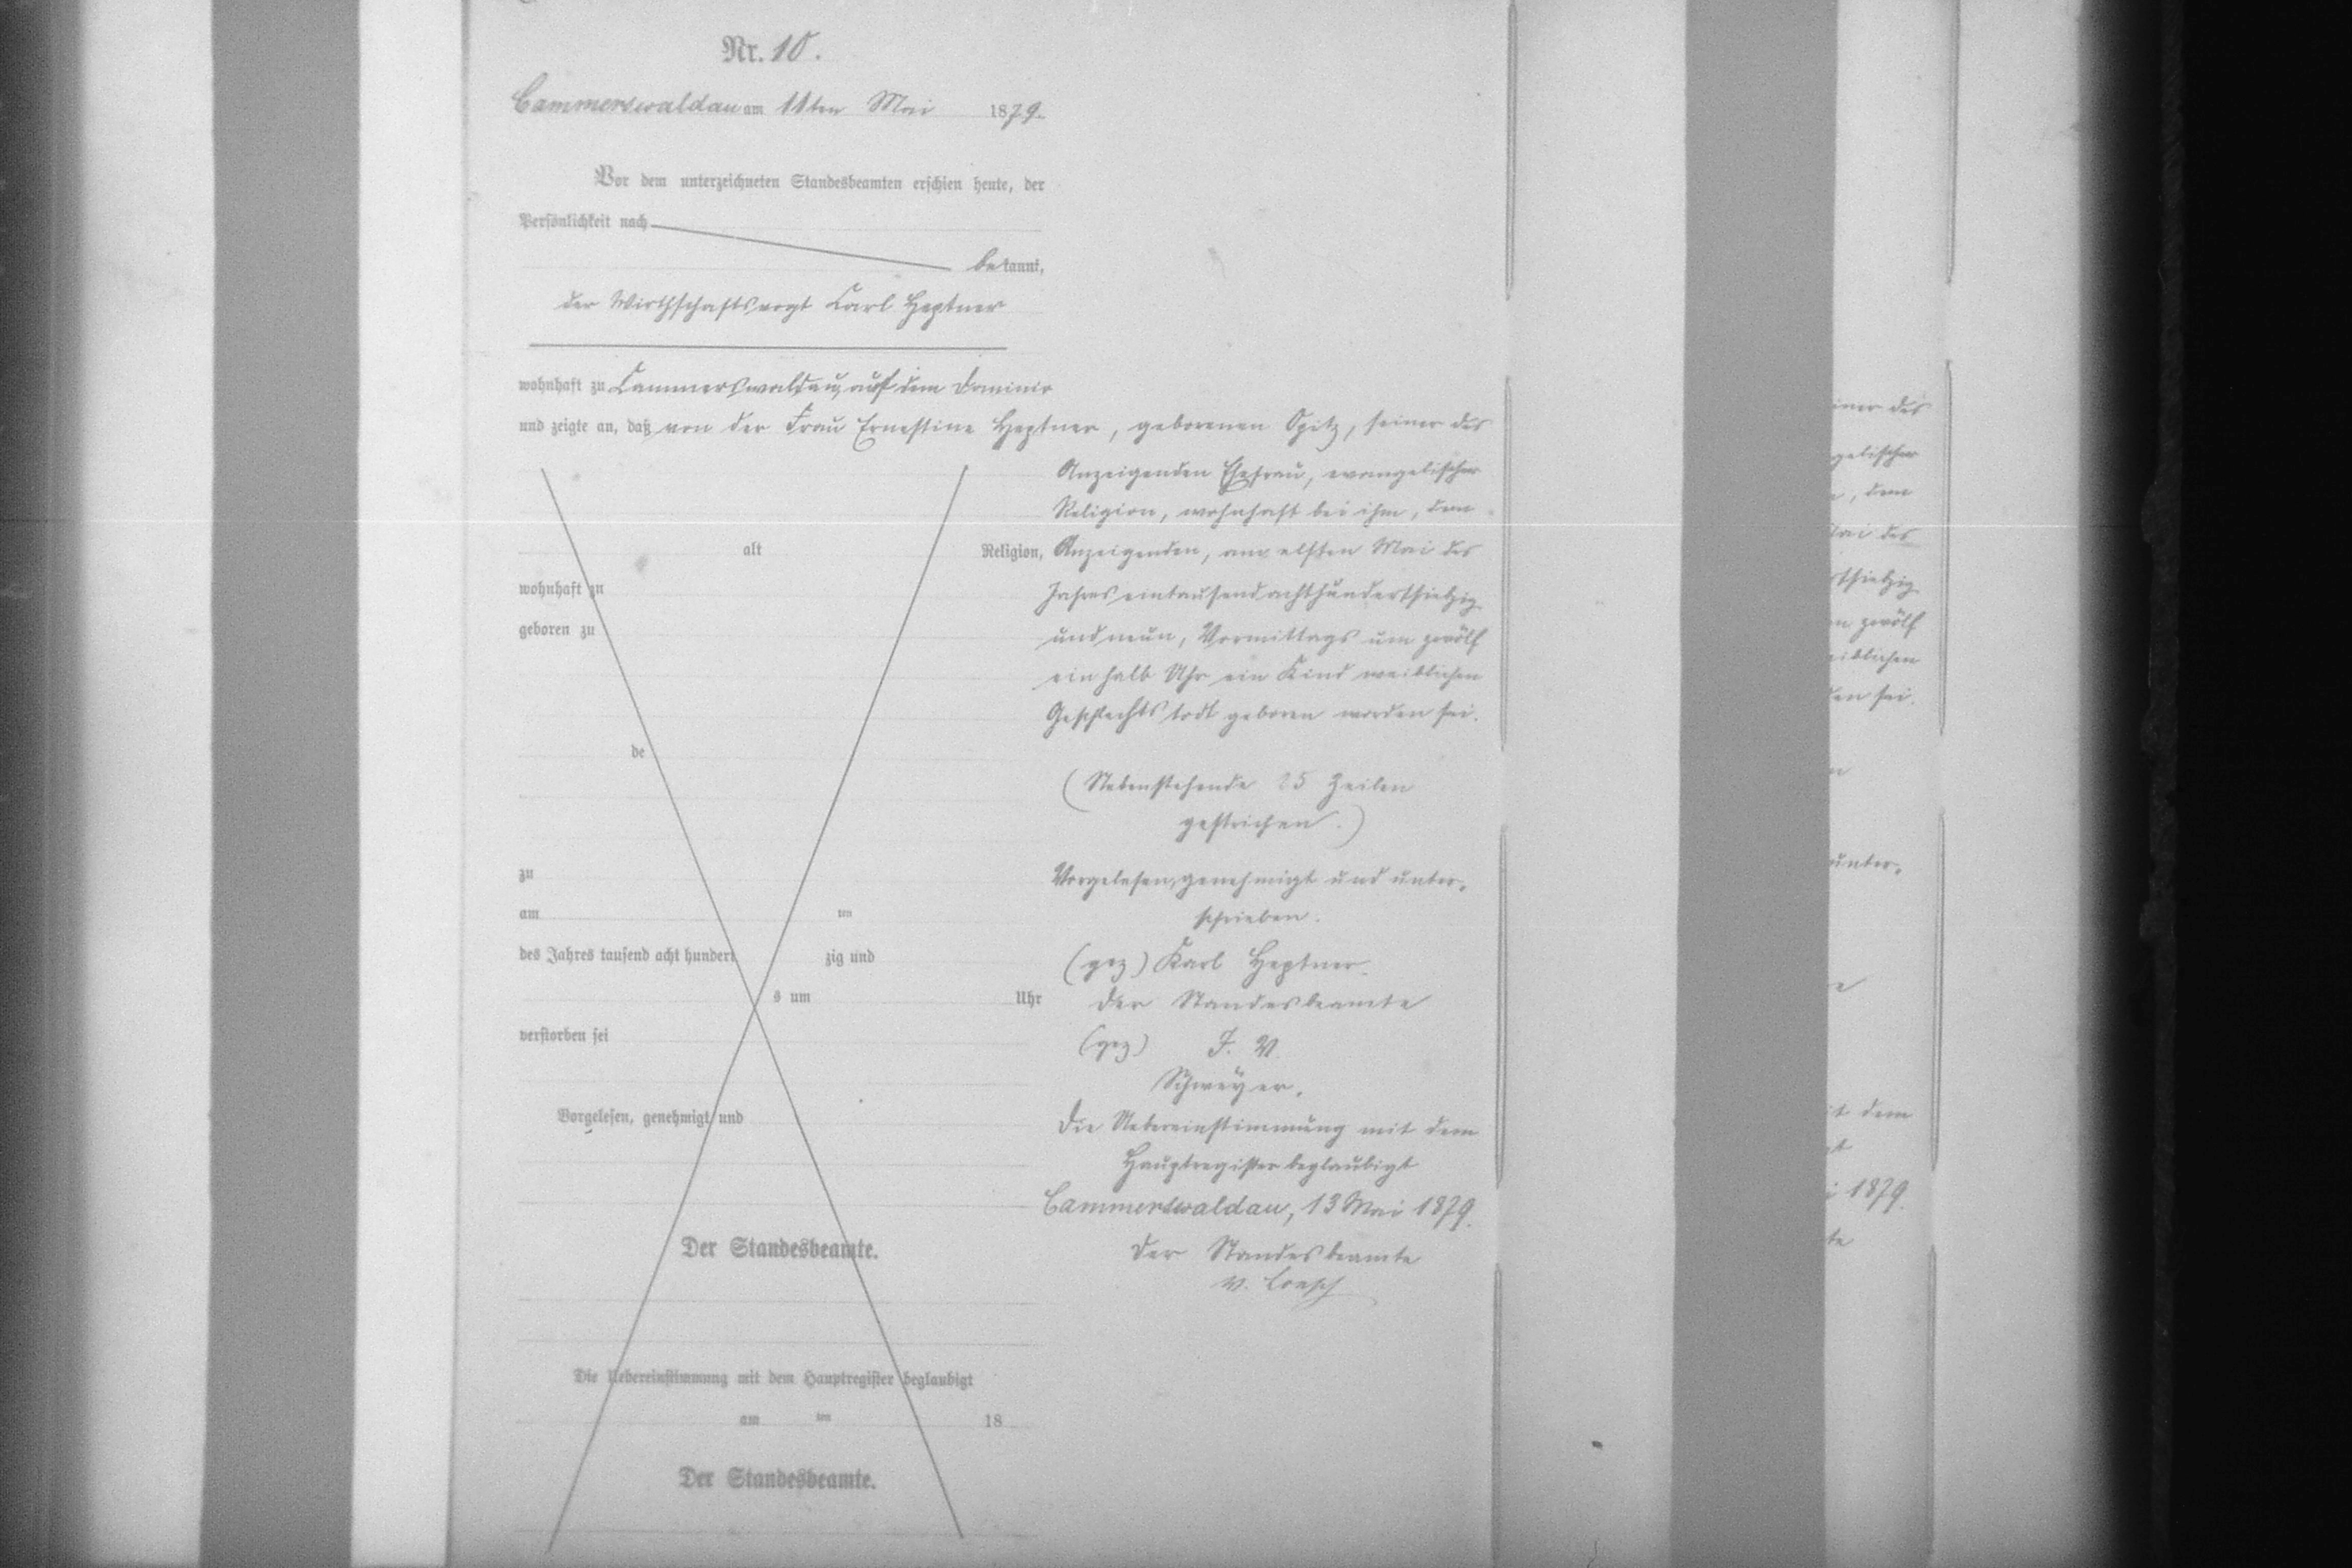 Nr. 10.
Cammerswaldau am 11ten Mai 1879.
Vor dem unterzeichneten Standesbeamten erschien heute, der
Persönlichkeit nach
bekannt,
der Wirthschaftsvogt Carl Heptner
wohnhaft zu Cammerswaldau, auf dem Dominio
und zeigte an, daß von der Frau Ernestine Heptner, geborenen Opitz, seiner des
Anzeigenden Ehefrau, evangelischer
Religion, wohnhaft bei ihm, dem
alt Religion, Anzeigenden, am elften Mai des
wohnhaft zu Jahres eintausendachthundertsiebzig
geboren zu und neun, Vormittags um zwölf
ein halb Uhr ein Kind weiblichen
Geschlechts todt geboren worden sei.
de
(Nebenstehende 25 Zeilen
gestrichen.)
zu Vorgelesen, genehmigt und unter-
am ten schrieben.
des Jahres tausend acht hundert zig und (gez) Karl Heptner.
s um Uhr Der Standesbeamte
verstorben sei (gez) J. V.
Schweyer.
Vorgelesen, genehmigt und Die Uebereinstimmung mit dem
Hauptregister beglaubigt
Cammerswaldau, 13 Mai 1879.
Der Standesbeamte. Der Standesbeamte
v. Loesch
Die Uebereinstimmung mit dem Hauptregister beglaubigt
am ten 18
Der Standesbeamte.
iner des
gelischer
, dem
Mai des
rtsiebzig
m zwölf
eiblichen
den sei.
n
unter-
e
it dem
gt
i 1879.
te